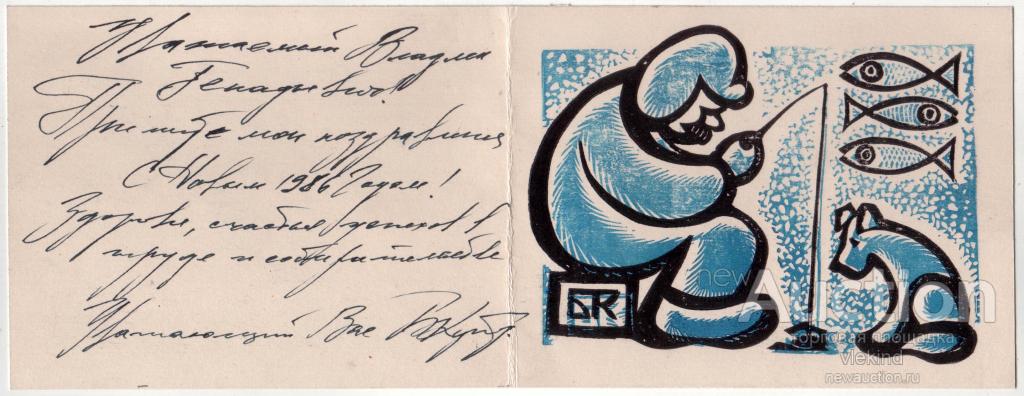 Уважаемый Владлен
Генадьевич
Примите мои поздравления
С Новым 1986 Годом!
Здоровья, счастья успехов в
труде и собирательстве
Уважающий Вас
БК
newAuction
торговая площадка
Vlekind
newauction.ru